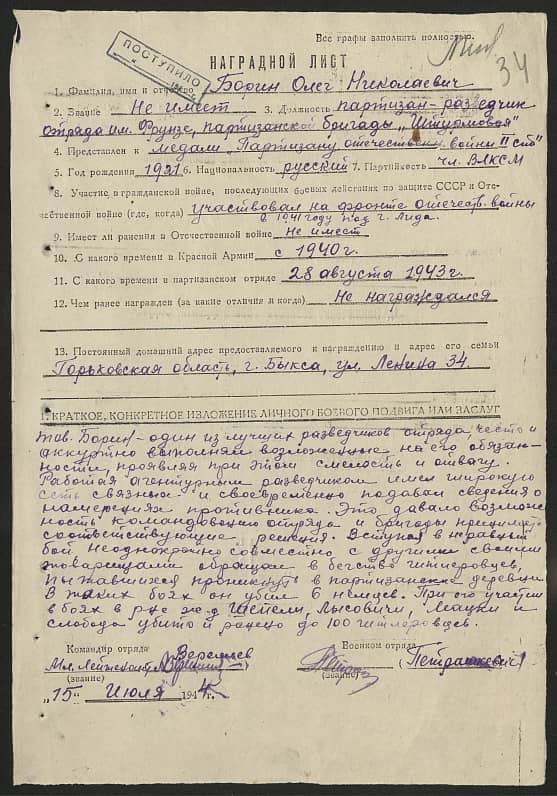 Все графы заполнять полностью.
34
ПОСТУПИЛО
НАГРАДНОЙ ЛИСТ
1. Фамилия, имя и отчество Борин Олег Николаевич
2. Звание Не имеет 3. Должность партизан-разведчик
отряда им. Фрунзе, партизанской бригады „Штурмовая"
4. Представлен к медали „Партизану отечествен. войны II ст."
5. Год рождения 1921 6. Национальность русский 7. Партийность чл. ВЛКСМ
8. Участие в гражданской войне, последующих боевых действиях по защите СССР и Оте-
чественной войне (где, когда) участвовал на фронте отечеств. войны
с 1941 году под г. Лида.
9. Имеет ли ранения в Отечественной войне не имеет
10. С какого времени в Красной Армии с 1940 г.
11. С какого времени в партизанском отряде 28 августа 1943 г.
12. Чем ранее награжден (за какие отличия и когда) Не награждался
13. Постоянный домашний адрес предоставляемого к награждению и адрес его семьи
Горьковская область, г. Выкса, ул. Ленина 34.
1. КРАТКОЕ, КОНКРЕТНОЕ ИЗЛОЖЕНИЕ ЛИЧНОГО БОЕВОГО ПОДВИГА ИЛИ ЗАСЛУГ
тов. Борин - один из лучших разведчиков отряда, честно и
аккуртно выполнял возложенные на его обязан-
ности, проявляя при этом смелость и отвагу.
Работая агентурным разведчиком имел широкую
сеть связных и своевременно подавал сведения о
намерениях противника. Это давало возмож-
ность командованию отряда и бригады принимать
соответствующие решения. Вступая в неравный
бой неоднократно совместно с другими своими
товарищами обращал в бегство гитлеровцев,
пытавшихся проникнуть в партизанские деревни.
В таких боях он убил 6 немцев. При его участии
в боях в р-не ж.д. Шепели, Лысовичи, Мацки и
слобода убито и ранено до 100 гитлеровцев.
Командир отряда
Военком отряда
Мл. Лейтенант
(звание)
(звание)
„15" Июля 194